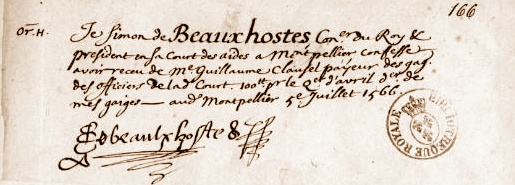 166
Or. H.
Je Simon de Beauxhostes Con.er du Roy &
president en sa Court des aides a Montpellier confesse
avoir receu de M.e Guillaume Clausel payeur des gag.
des officiers de lad. Court. 100 pr le d'avril der de
mes gaiges — aud Montpellier 5e Juillet 1566.
SdeBeaulxhoste
BIBLIOTHEQUE ROYALE